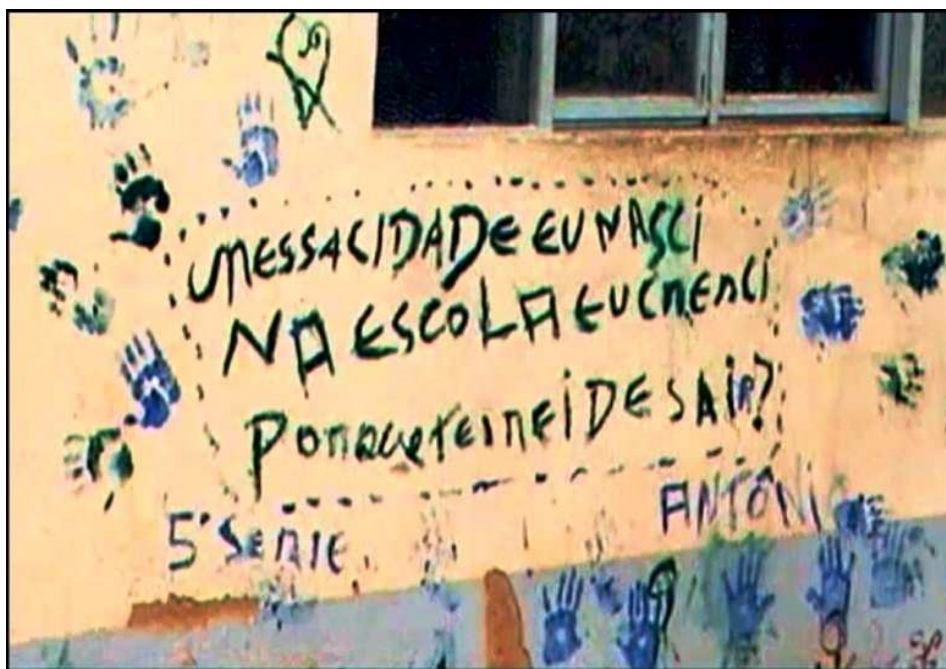 NESSA CIDADE EU NASCI
NA ESCOLA EU CRESCI
PORQUE TEIREI DE SAIR?
5ª SERIE
ANTÔNIO